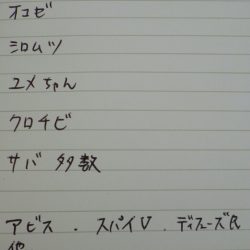 オコゼ
シロムツ
ユメちゃん
クロチビ
サバ 多数
アビス . スパイV . ディスーズ氏
他